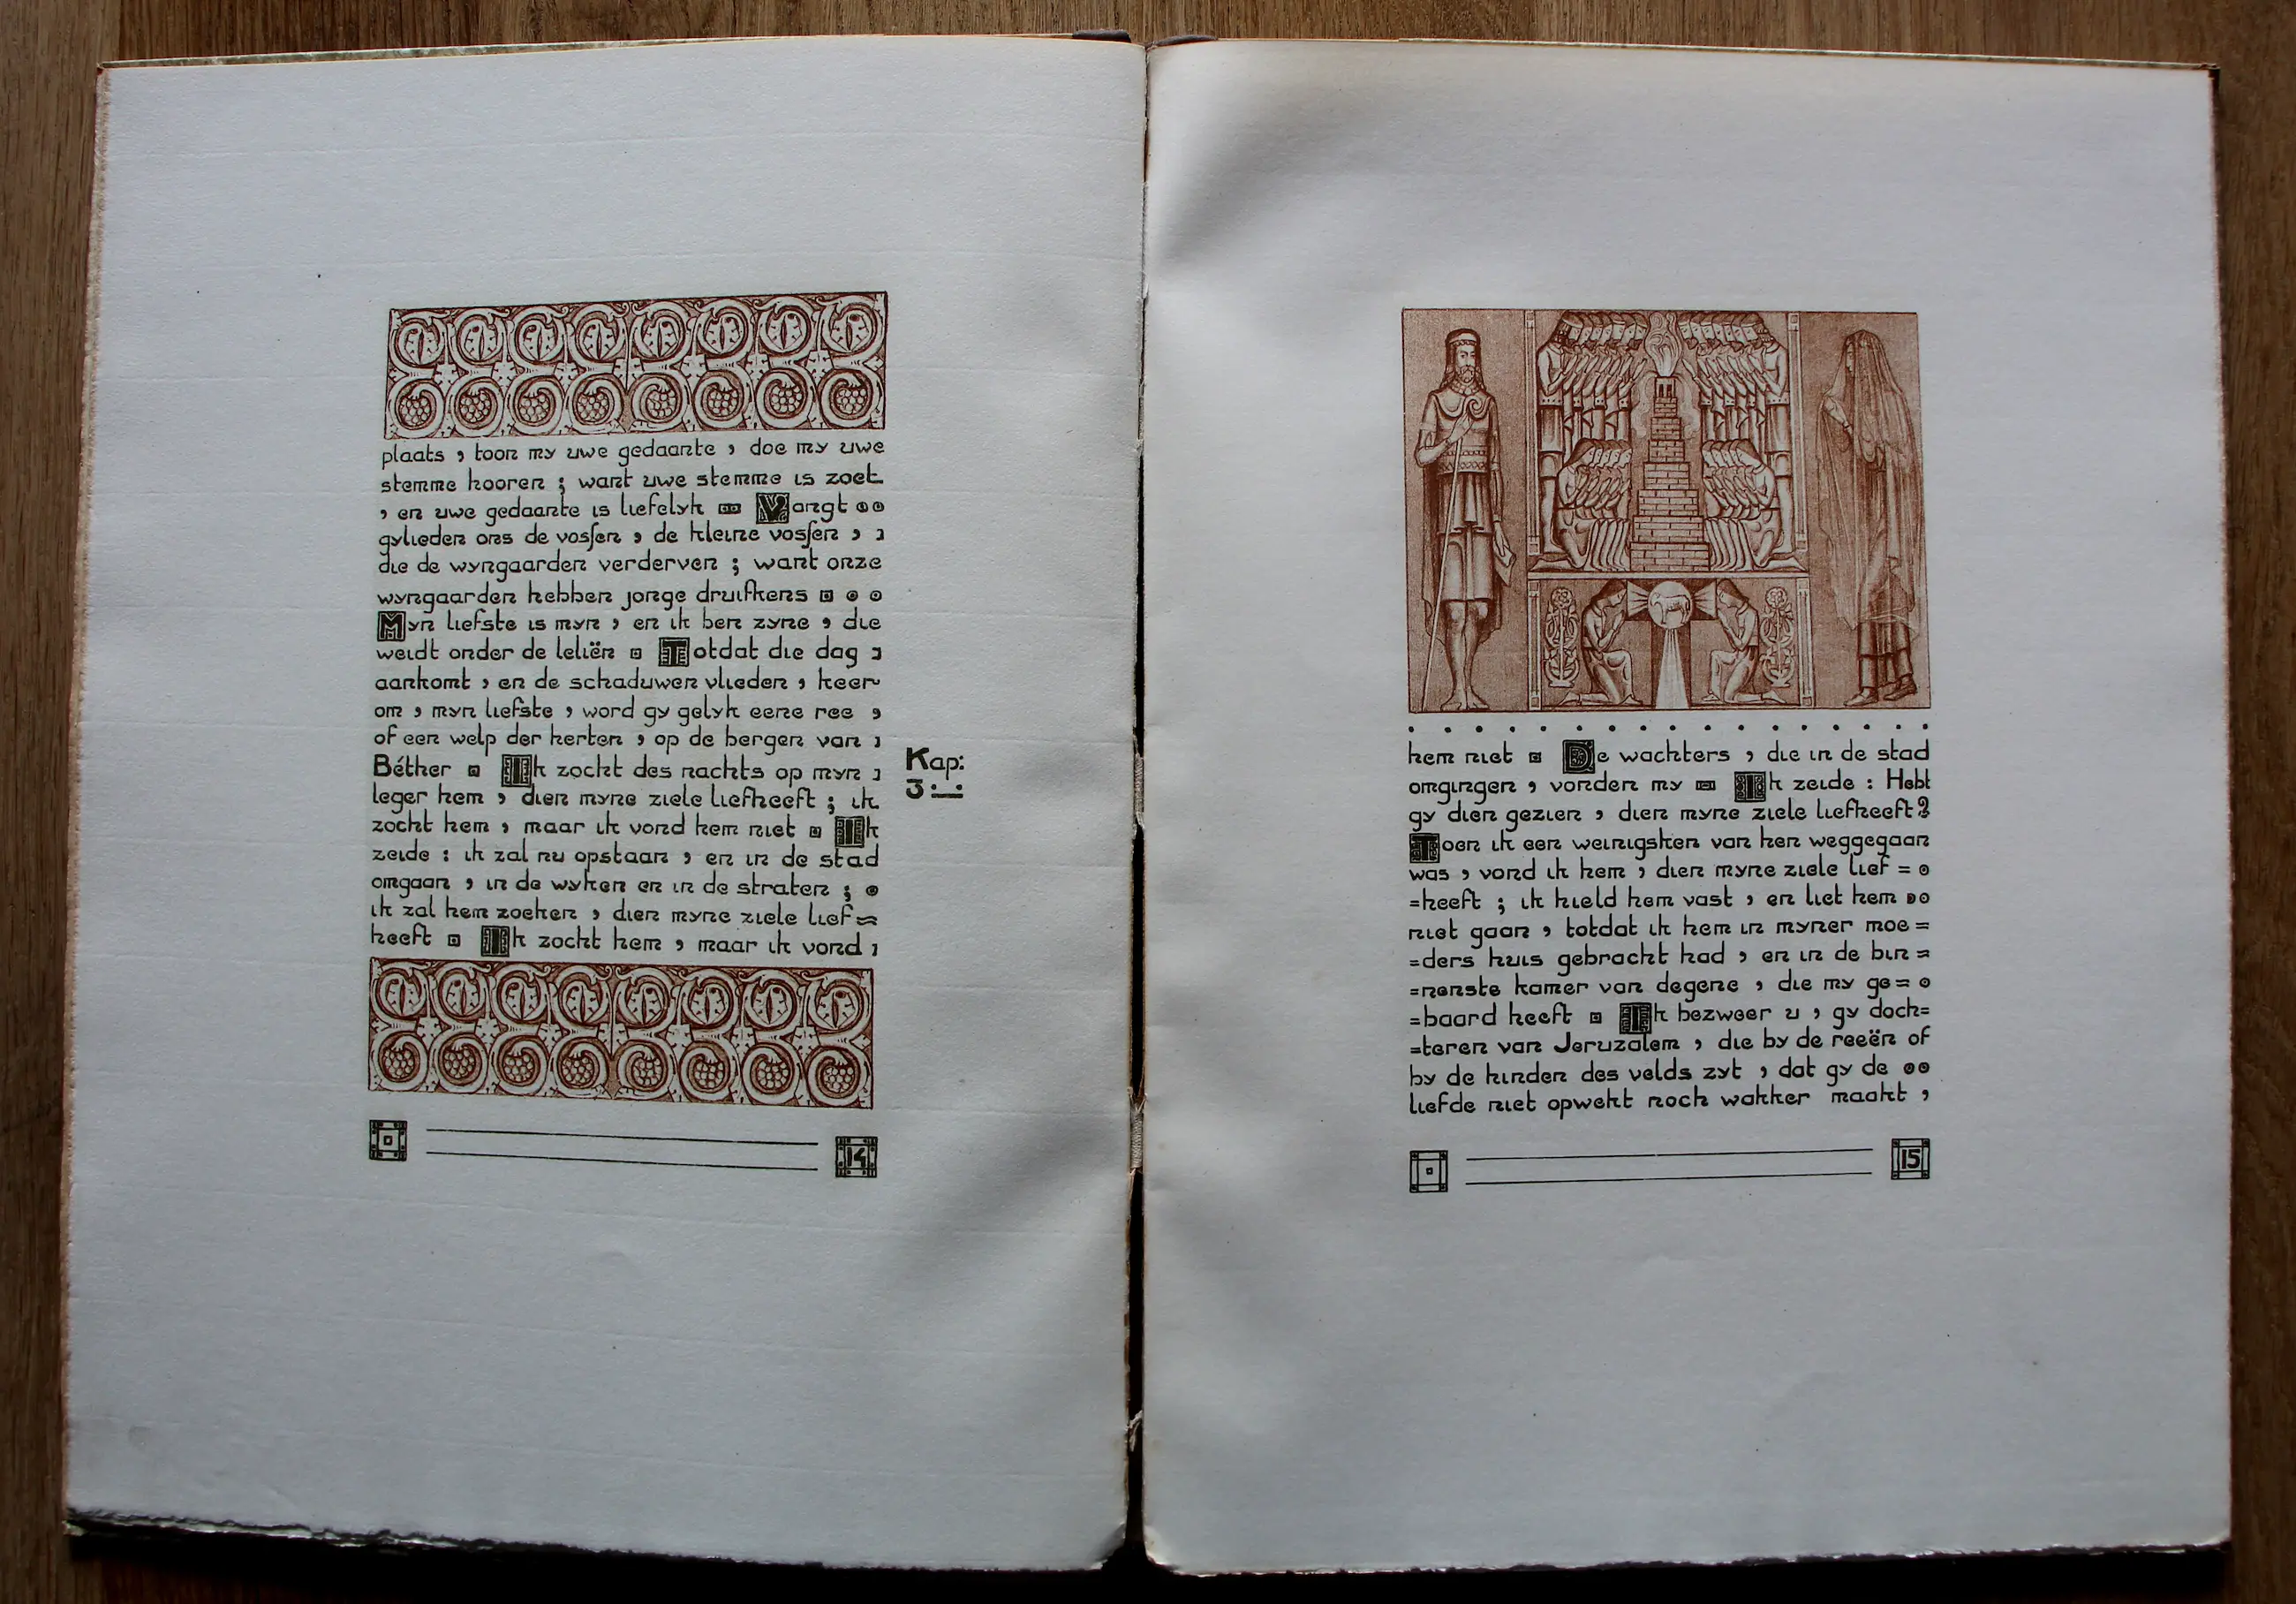 plaats , toon my uwe gedaante , doe my uwe
stemme hooren ; want uwe stemme is zoet
, en uwe gedaante is liefelyk Vangt
gylieden ons de vossen , de kleine vossen ,
die de wyngaarden verderven ; want onze
wyngaarden hebben jonge druifkens
Myn liefste is myn , en ik ben zyne , die
weidt onder de leliën Totdat die dag
aankomt , en de schaduwen vlieden , keer
om , myn liefste , word gy gelyk eene ree ,
of een welp der herten , op de bergen van
Béther Ik zocht des nachts op myn
leger hem , dien myne ziele liefheeft ; ik
zocht hem , maar ik vond hem niet Ik
zeide : ik zal nu opstaan , en in de stad
omgaan , in de wyken en in de straten ;
ik zal hem zoeken , dien myne ziele lief=
heeft Ik zocht hem , maar ik vond
Kap:
3
14
hem niet De wachters , die in de stad
omgingen , vonden my Ik zeide : Hebt
gy dien gezien , dien myne ziele liefheeft?
Toen ik een weinigsken van hen weggegaan
was , vond ik hem , dien myne ziele lief =
=heeft ; ik hield hem vast , en liet hem
niet gaan , totdat ik hem in myner moe =
=ders huis gebracht had , en in de bin =
=nenste kamer van degene , die my ge =
=baard heeft Ik bezweer u , gy doch=
=teren van Jeruzalem , die by de reeën of
by de hinden des velds zyt , dat gy de
liefde niet opwekt noch wakker maakt ,
15